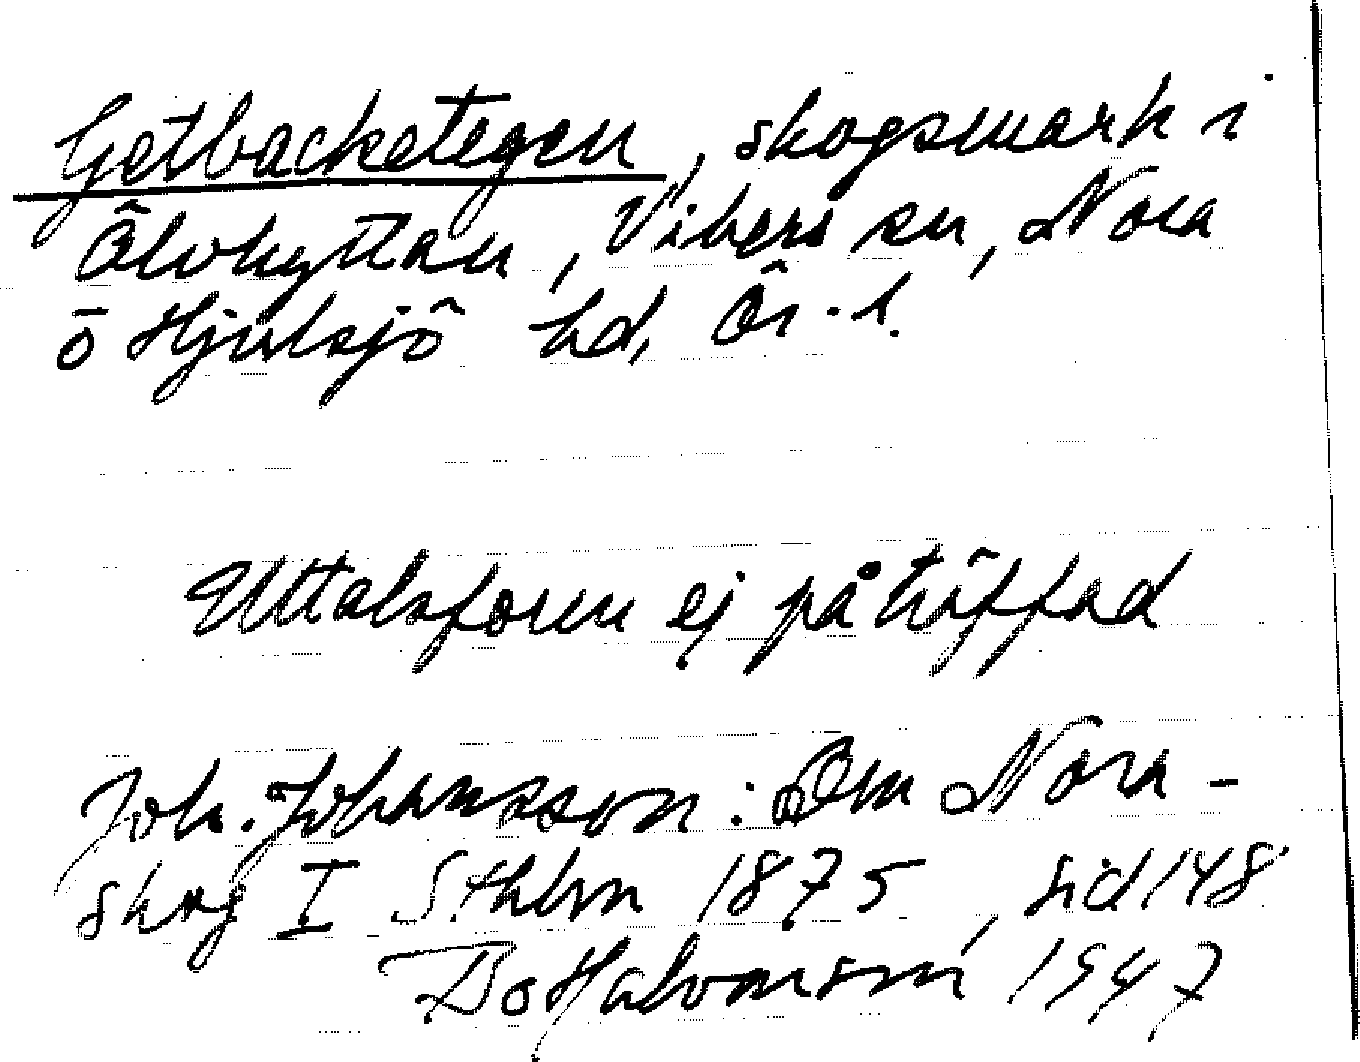 Getbacketegen, skogsmark i
Ölvhyttan, Vikers sn, Nora
o Hjulsjö hd, Ör. l.
Uttalsform ej påträffad
Joh. Johansson: Om Nora-
skog I Sthlm 1875, sid 148
Bo Halvarsson 1947